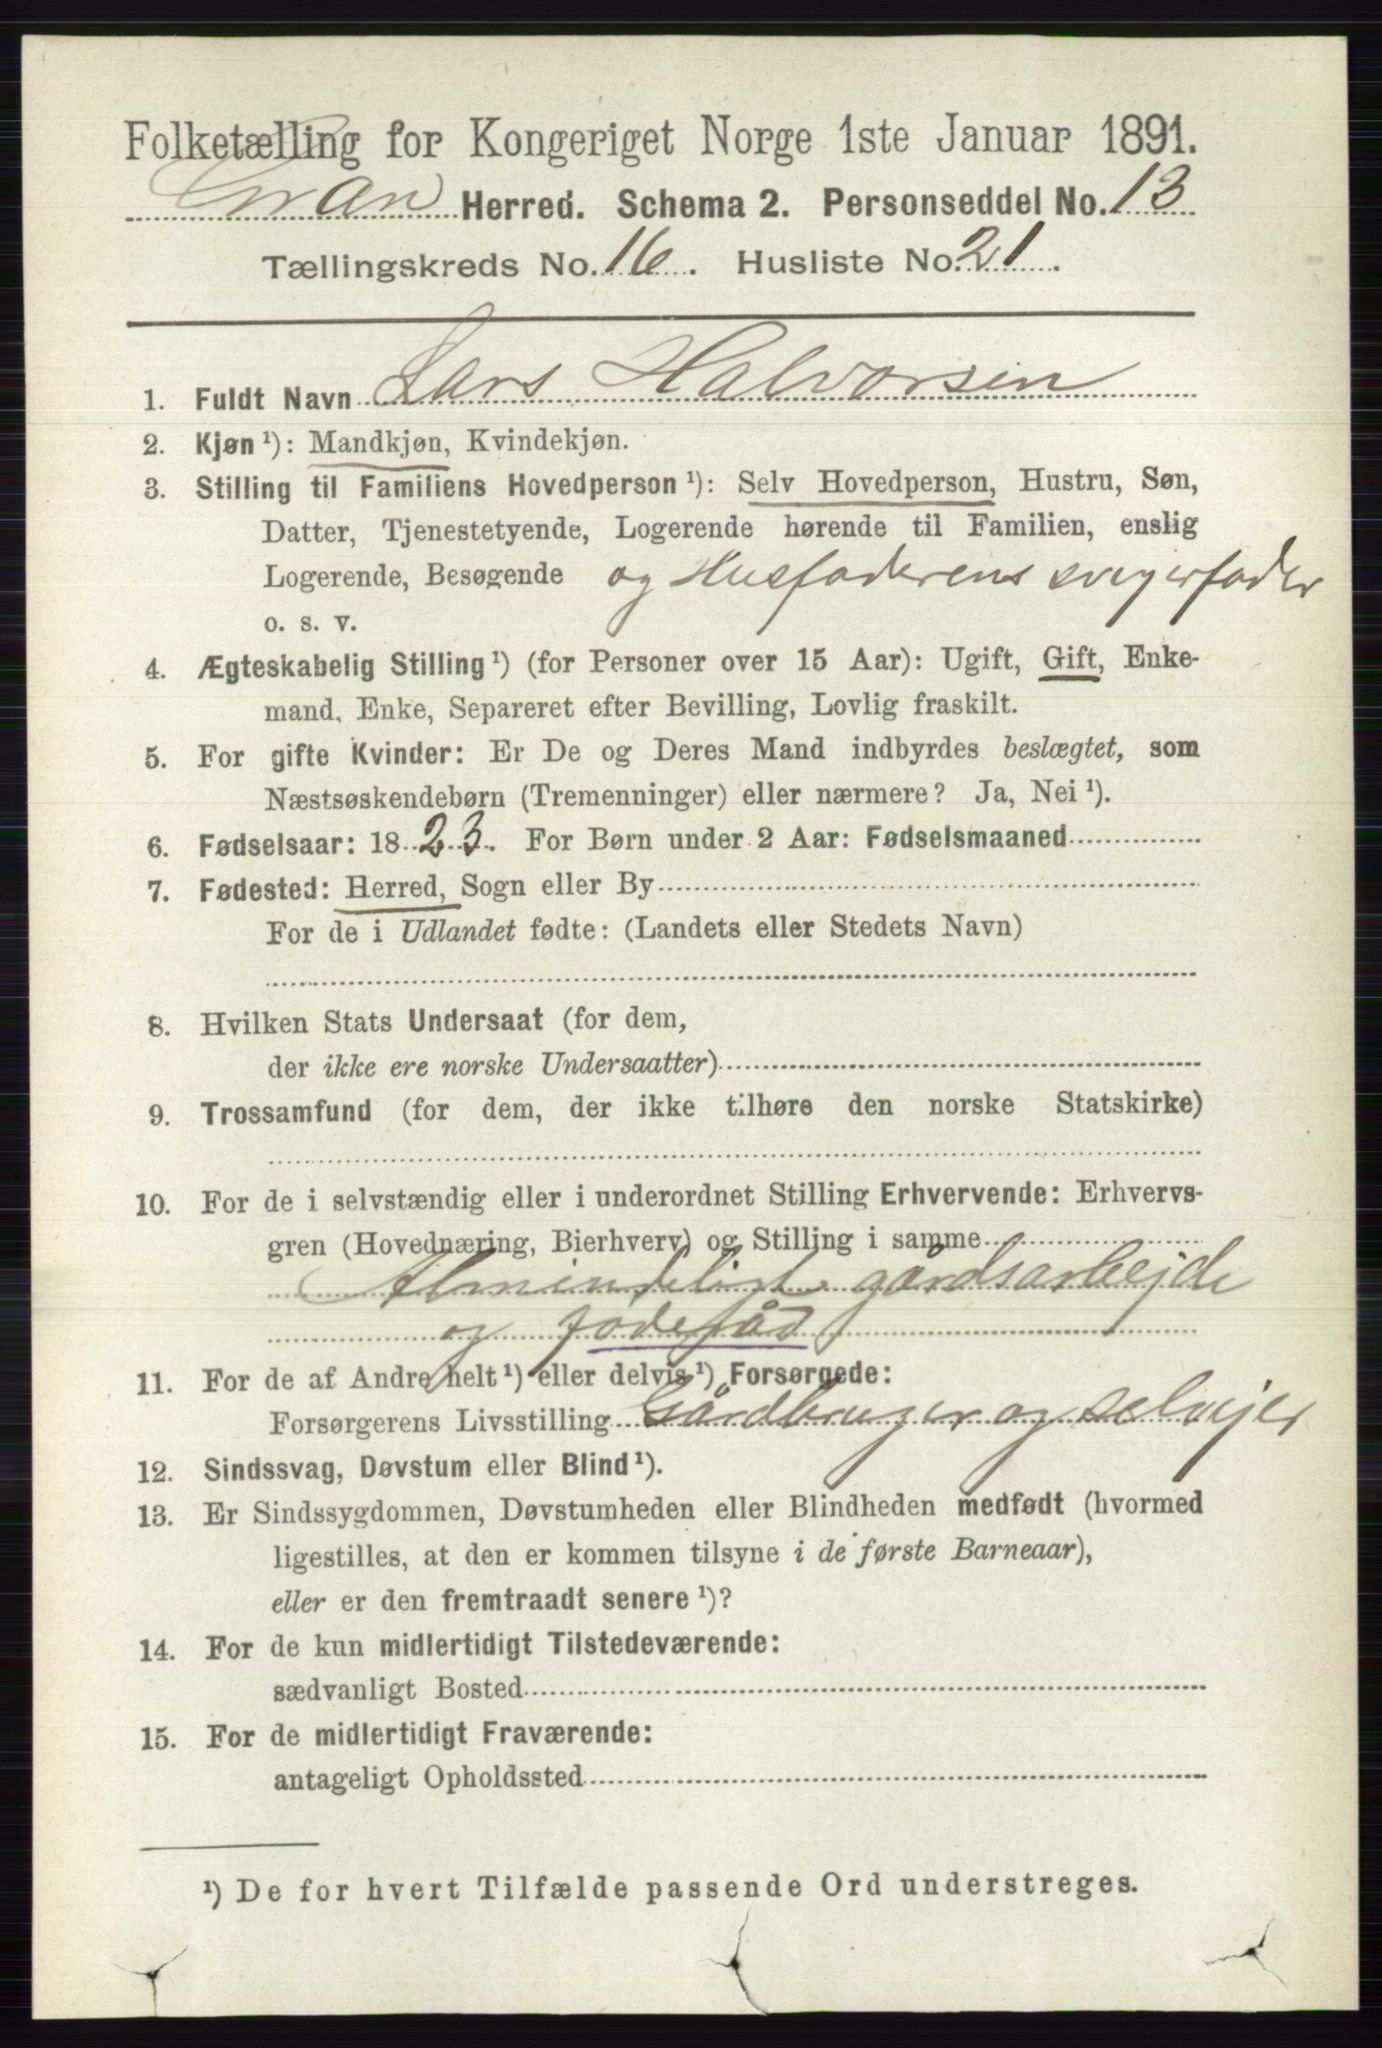 Folketælling for Kongeriget Norge 1ste Januar 1891.
Gran Herred. Schema 2. Personseddel No. 13
Tællingskreds No. 16. Husliste No. 21.
1. Fuldt Navn Lars Halvorsen
2. Kjøn ¹): Mandkjøn, Kvindekjøn.
3. Stilling til Familiens Hovedperson ¹): Selv Hovedperson, Hustru, Søn,
Datter, Tjenestetyende, Logerende hørende til Familien, enslig
Logerende, Besøgende og Husfaderens svigerfader
o. s. v.
4. Ægteskabelig Stilling ¹) (for Personer over 15 Aar): Ugift, Gift, Enke-
mand, Enke, Separeret efter Bevilling, Lovlig fraskilt.
5. For gifte Kvinder: Er De og Deres Mand indbyrdes beslægtet, som
Næstsøskendebørn (Tremenninger) eller nærmere? Ja, Nei ¹).
6. Fødselsaar: 1823. For Børn under 2 Aar: Fødselsmaaned
7. Fødested: Herred, Sogn eller By
For de i Udlandet fødte: (Landets eller Stedets Navn)
8. Hvilken Stats Undersaat (for dem,
der ikke ere norske Undersaatter)
9. Trossamfund (for dem, der ikke tilhøre den norske Statskirke)
10. For de i selvstændig eller i underordnet Stilling Erhvervende: Erhvervs-
gren (Hovednæring, Bierhverv) og Stilling i samme
Almindeligt gårdsarbejde
og føderåd
11. For de af Andre helt ¹) eller delvis ¹) Forsørgede:
Forsørgerens Livsstilling Gårdbruger og selvejer
12. Sindssvag, Døvstum eller Blind ¹).
13. Er Sindssygdommen, Døvstumheden eller Blindheden medfødt (hvormed
ligestilles, at den er kommen tilsyne i de første Barneaar),
eller er den fremtraadt senere ¹)?
14. For de kun midlertidigt Tilstedeværende:
sædvanligt Bosted
15. For de midlertidigt Fraværende:
antageligt Opholdssted
¹) De for hvert Tilfælde passende Ord understreges.